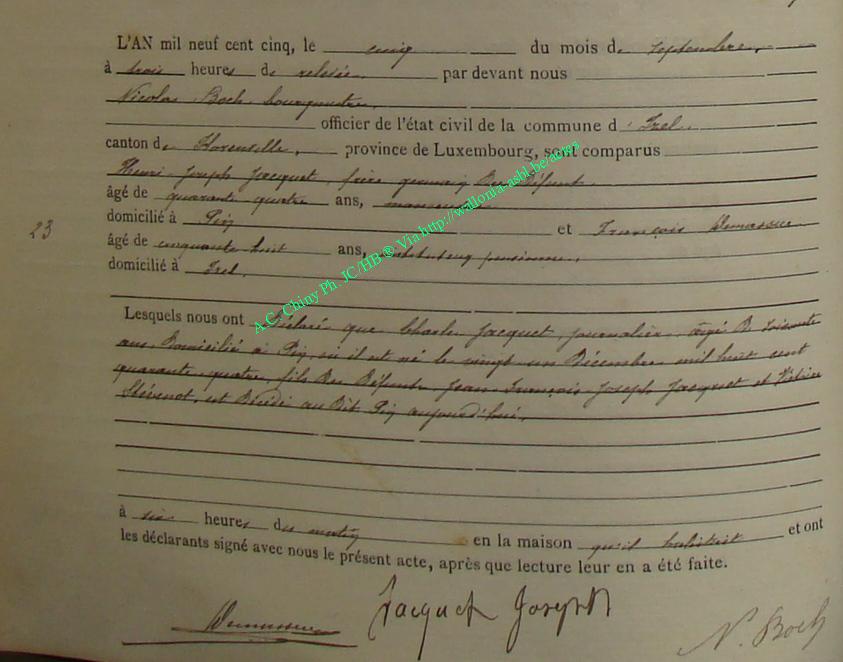 L'AN mil neuf cent cinq, le cinq du mois de septembre,
à trois heures de relevée par devant nous
Nicolas Boch, bourgmestre,
officier de l'état civil de la commune d'Izel,
canton de Florenville, province de Luxembourg, sont comparus
Henri Joseph Jacquet, frère germain du défunt,
âgé de quarante quatre ans, manœuvre
23
domicilié à Pin et François
âgé de cinquante huit ans, pensionné,
domicilié à Izel,
A.C. Chiny Ph. JC/HB ® Via http://wallonia-asbl.be/actes
Lesquels nous ont déclaré que Charles Jacquet, journalier, âgé de soixante
ans, domicilié à Pin, où il est né le vingt un décembre mil huit cent
quarante quatre, fils des défunts Jean François Joseph Jacquet et
Stévenot, est décédé au dit Pin aujourd'hui,
à six heures du matin en la maison qu'il habitait et ont
les déclarants signé avec nous le présent acte, après que lecture leur en a été faite.
Jacquet Joseph
N. Boch